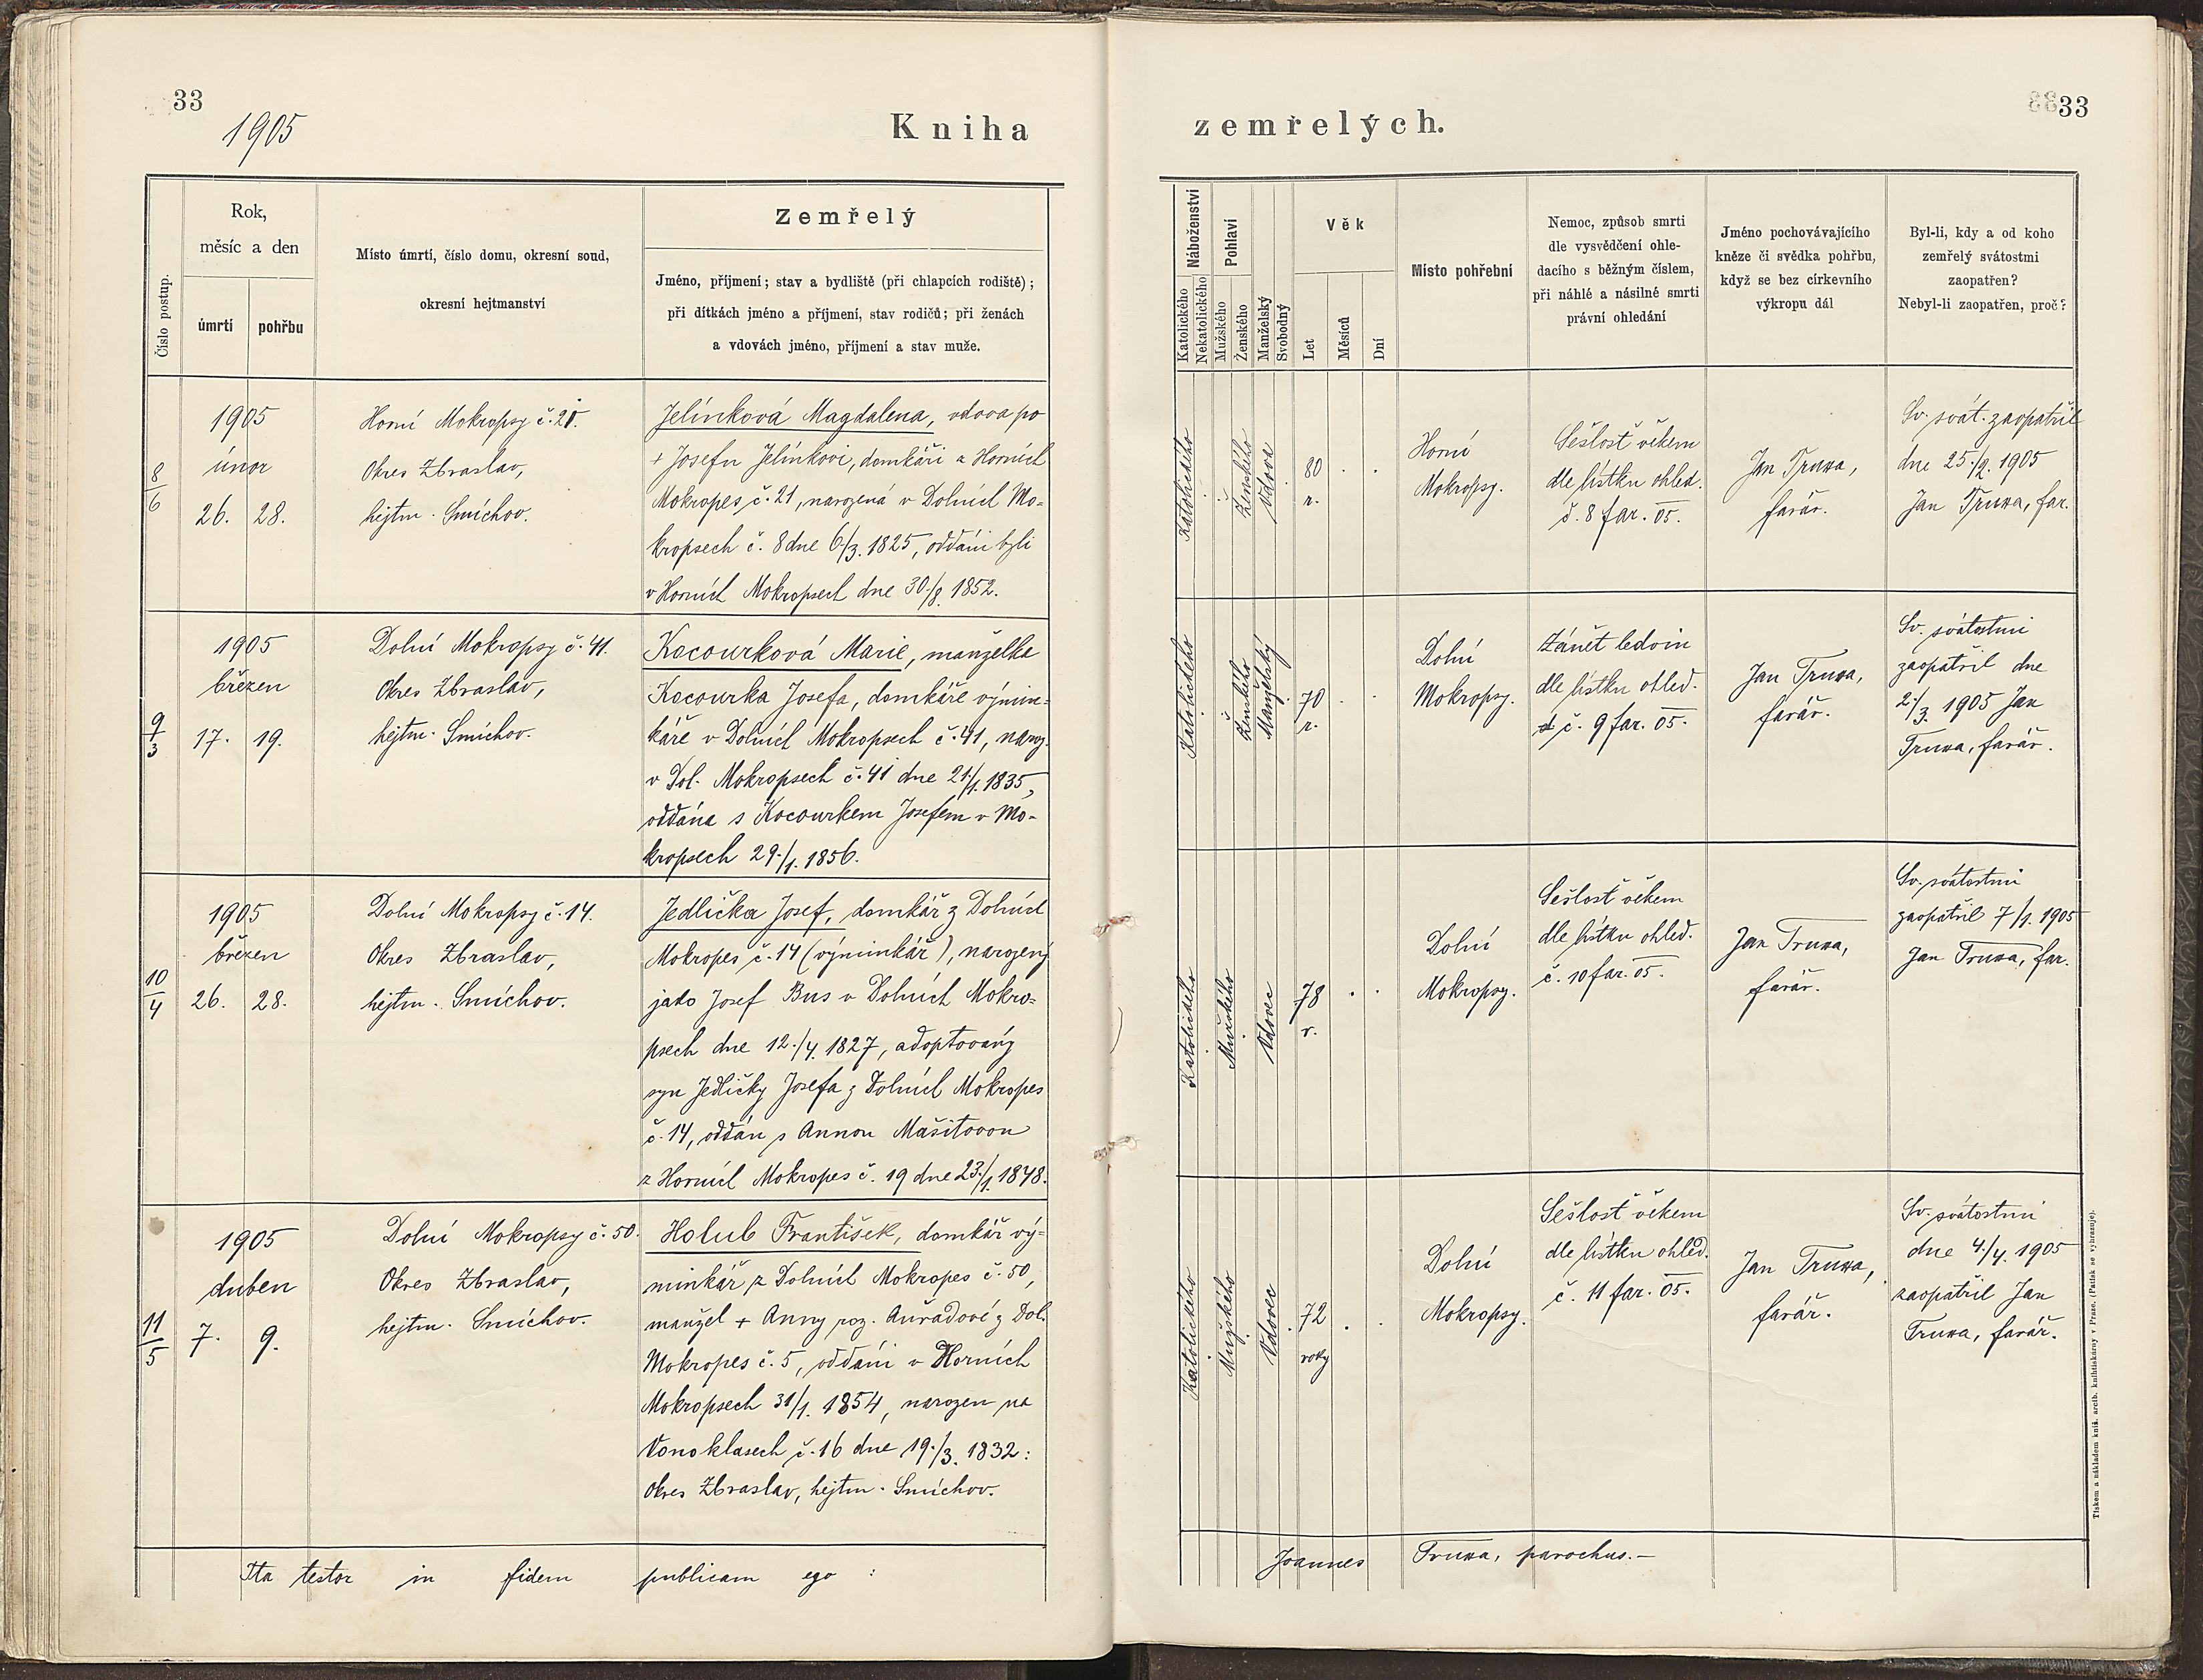 33
1905
Kniha
Číslo postup.
Rok,
měsíc a den
úmrtí
pohřbu
Místo úmrtí, číslo domu, okresní soud,
okresní hejtmanství
Zemřelý
Jméno, příjmení; stav a bydliště (při chlapcích rodiště);
při dítkách jméno a příjmení, stav rodičů; při ženách
a vdovách jméno, příjmení a stav muže.
8/6
1905
únor
26. 28.
Horní Mokropsy č. 21.
Okres Zbraslav,
hejtm. Smíchov.
Jelínková Magdalena, vdova po
+ Josefu Jelínkovi, domkáři z Horních
Mokropes č. 21, narozená v Dolních Mo-
kropsech č. 8 dne 6/3. 1825, oddáni byli
v Horních Mokropsech dne 30./8. 1852.
9/3
1905
březen
17. 19.
Dolní Mokropsy č. 41.
Okres Zbraslav,
hejtm. Smíchov.
Kocourková Marie, manželka
Kocourka Josefa, domkáře výmin-
káře v Dolních Mokropsech č. 41, naroz.
v Dol. Mokropsech č. 41 dne 21/1. 1835,
oddána s Kocourkem Josefem v Mo-
kropsech 29./1. 1856.
10/4
1905
březen
26. 28.
Dolní Mokropsy č. 14.
Okres Zbraslav,
hejtm. Smíchov.
Jedlička Josef, domkář z Dolních
Mokropes č. 14 (výminkář), narozený
jako Josef Bus v Dolních Mokro-
psech dne 12./4. 1827, adoptovaný
syn Jedličky Josefa z Dolních Mokropes
č. 14, oddán s Annou Mašitovou
z Horních Mokropes č. 19 dne 23./1. 1848.
11/5
1905
duben
7. 9.
Dolní Mokropsy č. 50.
Okres Zbraslav,
hejtm. Smíchov.
Holub František, domkář vý-
minkář z Dolních Mokropes č. 50,
manžel + Anny roz. Auřadové z Dol.
Mokropes č. 5, oddáni v Horních
Mokropsech 31/1. 1854, narozen na
Vonoklasech č. 16 dne 19./3. 1832:
Okres Zbraslav, hejtm. Smíchov.
Ita testor in fidem publicam ego :
33
zemřelých.
Náboženství
Katolického
Nekatolického
Pohlaví
Mužského
Ženského
Manželský
Svobodný
Věk
Let
Měsíců
Dní
Místo pohřební
Nemoc, způsob smrti
dle vysvědčení ohle-
dacího s běžným číslem,
při náhlé a násilné smrti
právní ohledání
Jméno pochovávajícího
kněze či svědka pohřbu,
když se bez církevního
výkropu dál
Byl-li, kdy a od koho
zemřelý svátostmi
zaopatřen?
Nebyl-li zaopatřen, proč?
Katolického
Ženského
Vdova
80
r.
Horní
Mokropsy.
Sešlosť věkem
dle lístku ohled.
č. 8 far. 05.
Jan Truxa,
farář.
Sv. svát. zaopatřil
dne 25./2. 1905
Jan Truxa, far.
Katolického
Ženského
Manželský
70
r.
Dolní
Mokropsy.
Zánět ledvin
dle lístku ohled.
č. 9 far. 05.
Jan Truxa,
farář.
Sv. svátostmi
zaopatřil dne
2./3. 1905 Jan
Truxa, farář.
Katolického
Mužského
Vdovec
78
r.
Dolní
Mokropsy.
Sešlosť věkem
dle lístku ohled.
č. 10 far. 05.
Jan Truxa,
farář.
Sv. svátostmi
zaopatřil 7/1. 1905
Jan Truxa, far.
Katolického
Mužského
Vdovec
72
roky
Dolní
Mokropsy.
Sešlosť věkem
dle lístku ohled.
č. 11 far. 05.
Jan Truxa,
farář.
Sv. svátostmi
dne 4./4. 1905
zaopatřil Jan
Truxa, farář.
Joannes Truxa, parochus.—
Tiskem a nákladem kníž. arcib. knihtiskárny v Praze. (Patisk se vyhrazuje).